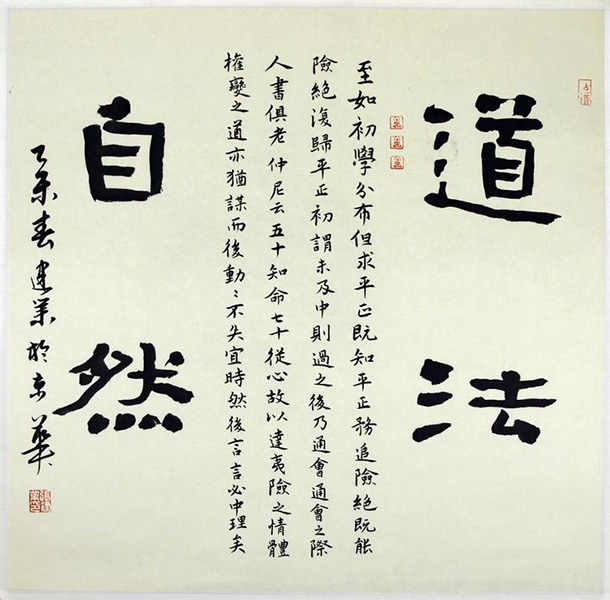 道法
至如初學分布但求平正既知平正務追險絕既能
險絕復歸平正初謂未及中則過之後乃通會通會之際
人書俱老仲尼云五十知命七十從心故以達夷險之情體
權變之道亦猶謀而後動〻不失宜時然後言言必中理矣
自然
春建業於京華